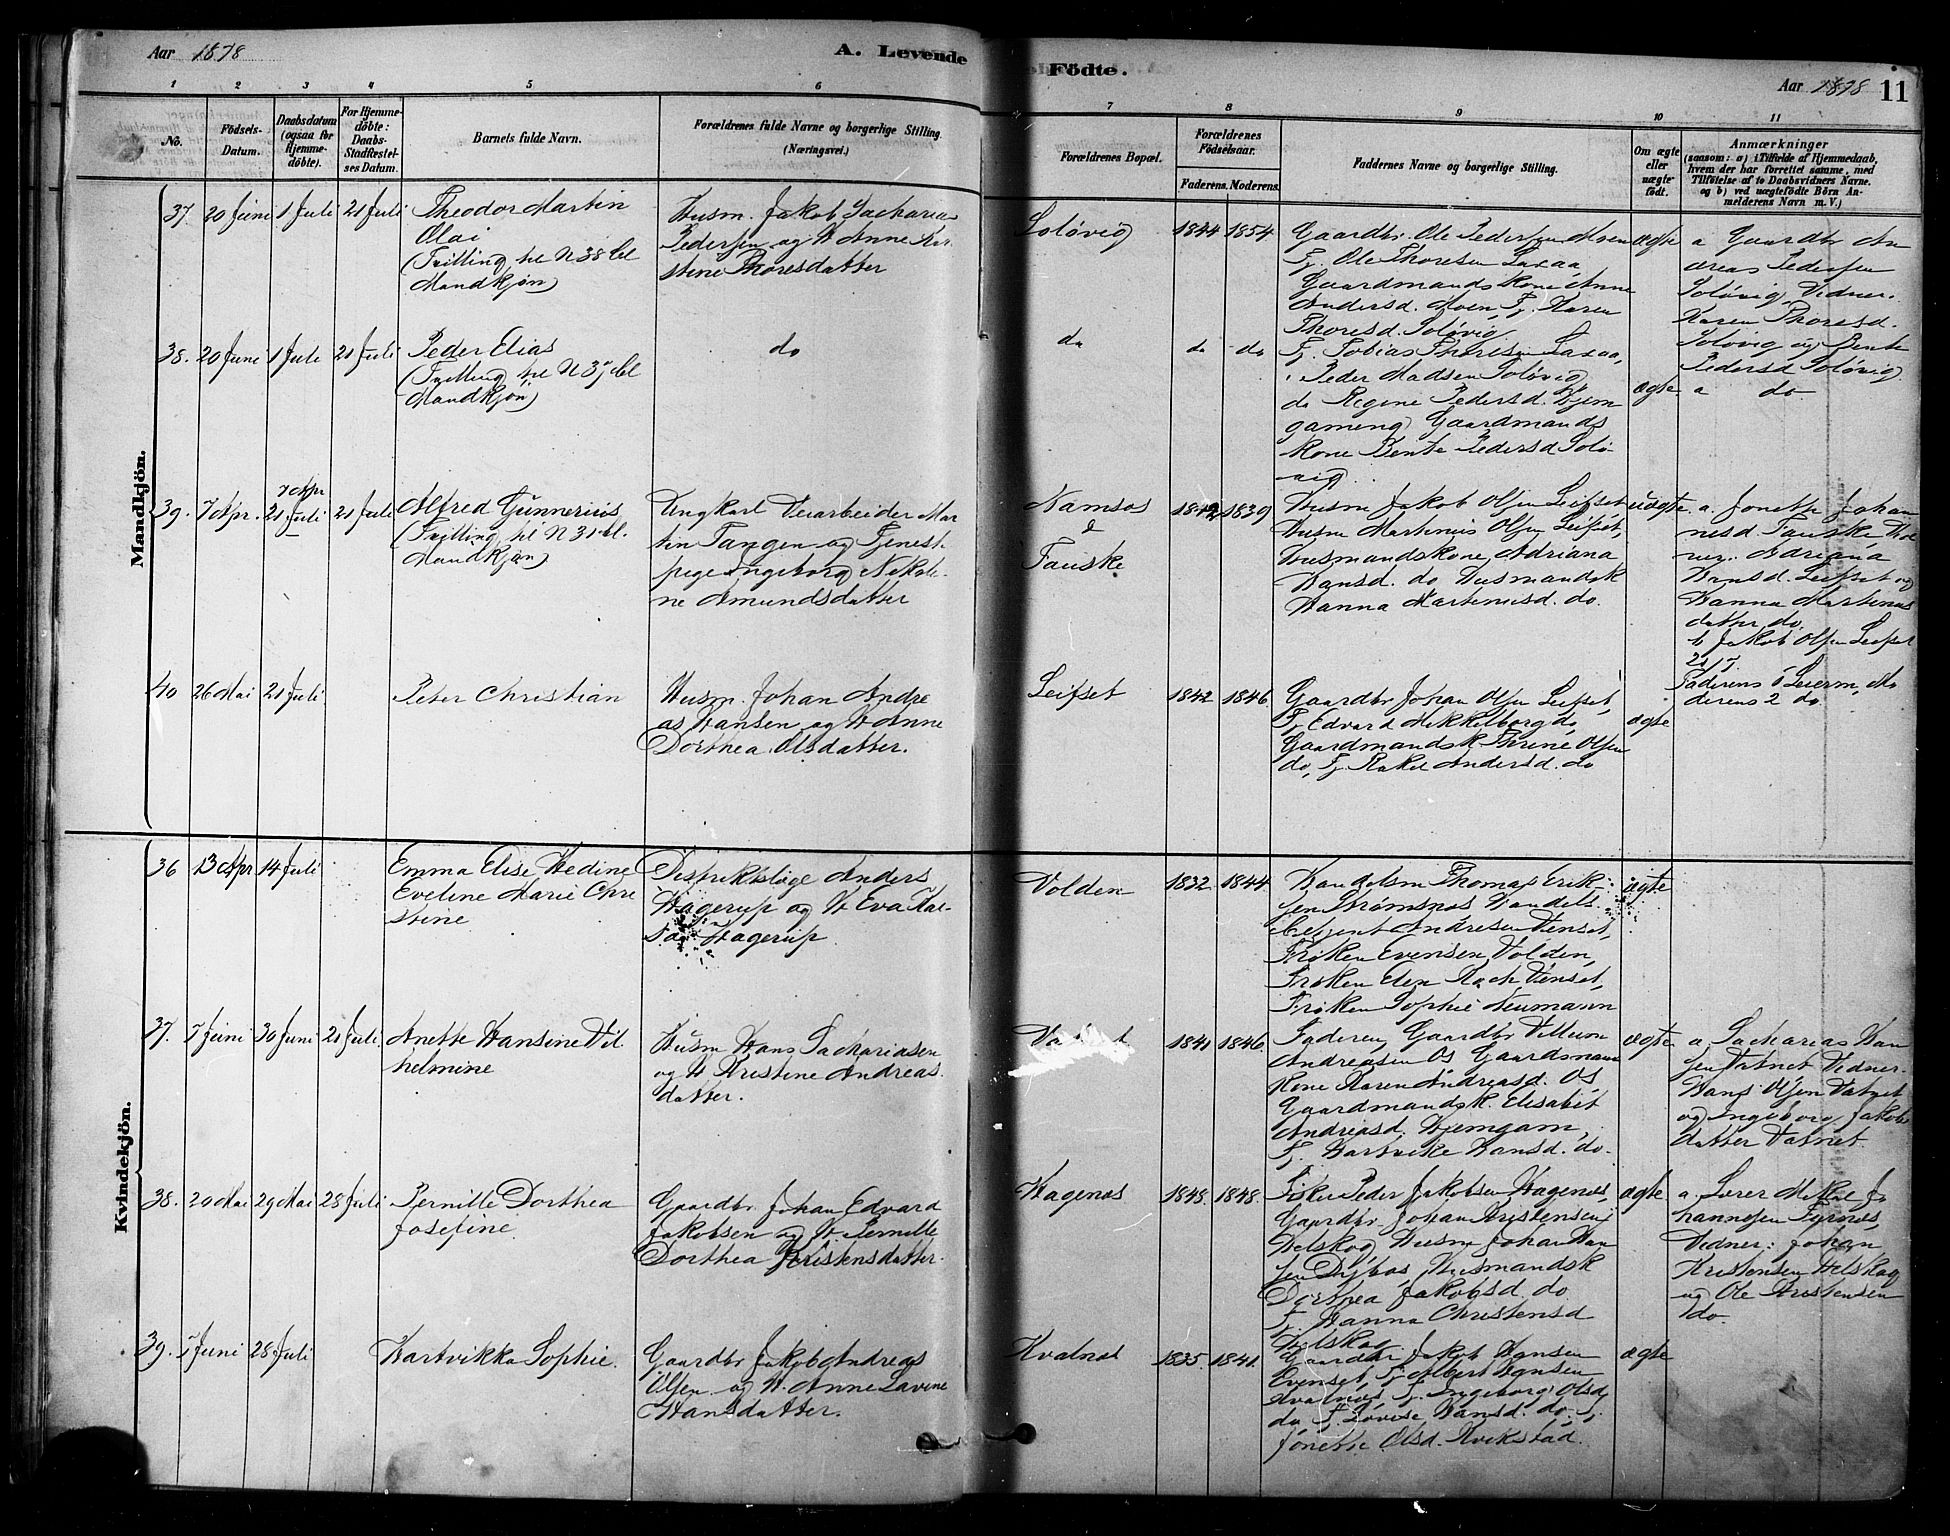 Aar 1878
A. Levende
Födte.
Aar 1878
11
1 2 3 4 5 6
7 8 9 10 11
No.
Födsels-
Datum.
Daabsdatum
(ogsaa for
Hjemme-
döbte).
For Hjemme-
döbte:
Daabs-
Stadfæstel-
ses Datum.
Barnets fulde Navn.
Forældrenes fulde Navne og borgerlige Stilling.
(Næringsvei.)
Forældrenes Bopæl.
Forældrenes
Födselsaar.
Faderens. Moderens.
Faddernes Navne og borgerlige Stilling.
Om ægte
eller
uægte
födt.
Anmærkninger
(saasom: a) i Tilfælde af Hjemmedaab,
hvem der har forrettet samme, med
Tilföielse af to Daabsvidners Navne.
og b) ved uægtefödte Börn An-
melderens Navn m. V.)
Mandkjön.
37. 20 Juni 1 Juli 21 Juli
Theodor Martin
Olai
(Tvilling til N 38 bl
Mandkjøn)
Husm. Jakob Sacharias
Pedersen og H Anne Kar-
stine Thoresdatter
Soløvig
1844 1854
Gaardbr. Ole Pedersen Moen
Tj. Ole Thoresen Laxaa,
Gaardmands Kone Anne
Andersd. Moen, Tj. Karen
Thoresd. Soløvig
ægte
a Gaardbr An
dreas Pedersen
Soløvig, Vidner.
Karen Thoresd.
Soløvig og Bente
Pedersd Soløvig
38. 20 Juni 1 Juli 21 Juli
Peder Elias
(Tvilling til N 37 bl
Mandkjøn)
do
do
do do
Tj. Tobias Thoresen Laxaa,
Peder Madsen Soløvig
do Regine Pedersd. Hjem
gameng Gaardmands
Kone Bente Pedersd Solø-
vig.
ægte
a do
39. 7 Apr.
7 Apr
21 Juli
21 Juli
Alfred Gunnerius
(Tvilling til N 35 bl.
Mandkjøn)
Ungkarl Veiarbeider Mar
tin Tangen og Tjenest-
pige Ingeborg Nikoli-
ne Amundsdatter
Namsos
&
Fauske
1842 1839
Husm Jakob Olsen Leifset
Husm Martinus Olsen Leifset,
Husmandskone Adriana
Hansd. do Husmandsk
Hanna Martinusd. do.
uægte
a. Jonette Johan
nesd. Fauske Vid
ner: Adriana
Hansd. Leifset og
Hanna Martinus
datter do.
b Jakob Olsen Leifset
Faderens 6 Leierm, Mo
derens 2 do.
40 26 Mai 21 Juli
Peter Christian
Husm. Johan Andre
as Hansen og H Anne
Dorthea Olsdatter.
Leifset
1842 1846
Gaardbr Johan Olsen Leifset,
Tj Edvard Mikkelborg do,
Gaardmandsk Thrine Olsen
do, Tj. Rakel Andersd. do
ægte
Kvindekjön.
36 13 Apr 14 Juli
Emma Elise Hedine
Eveline Marie Chri
stine
Distriktslæge Anders
Hagerup og H Eva
Hagerup
Volden
1832 1844
Handelsm Thomas Erik-
sen Strømsnes Handels
betjent Andresen Venset,
Frøken Evensen Volden,
Frøken Elen Koch Venset,
Frøken Sophie Neumann
ægte
37. 7 Juni 30 Juni 21 Juli
Anette Hansine Vil
helmine
Husm Hans Sachariasen
og H Kristine Andreas
datter.
1841 1846
Faderen, Gaardbr Villum
Andreasen Os Gaardmans
Kone Karen Andreasd. Os,
Gaardmandsk. Elisabet
Andreasd. Hjemgam,
Tj. Hartvike Hansd. do.
ægte
a. Sacharias Han
sen Vatnet Vidner
Hans Olsen Vatnet
og Ingeborg Jakobs
datter Vatnet
38. 20 Mai 29 Mai 28 Juli
Pernille Dorthea
Josefine
Gaardbr. Johan Edvard
Jakobsen og H Pernille
Dorthea Kristensdatter.
Hagenæs
1848. 1848.
Fisker Peder Jakobsen Hagenæs,
Gaardbr. Johan Kristensen
Helskog Husm Johan Han
sen Dybos, Husmandsk
Dorthea Jakobsd. do
Tj. Hanna Christensd
Helskog
ægte
a. Lærer Mikal Jo
hannesen Furnæs,
Vidner: Johan
Kristensen Helskog
og Ole Kristensen
do.
39. 7 Juni 28 Juli
Hartvikka Sophie.
Gaardbr Jakob Andreas
Olsen og H. Anne Lavine
Hansdatter.
Kvalnæs
1835. 1841.
Gaardbr. Jakob Hansen
Evenset, Tj Albert Hansen
Kvalnæs, Tj. Ingeborg Olsd
do Tj. Lovise Hansd. do Tj.
Jonette Olsd. Kvikstad
ægte